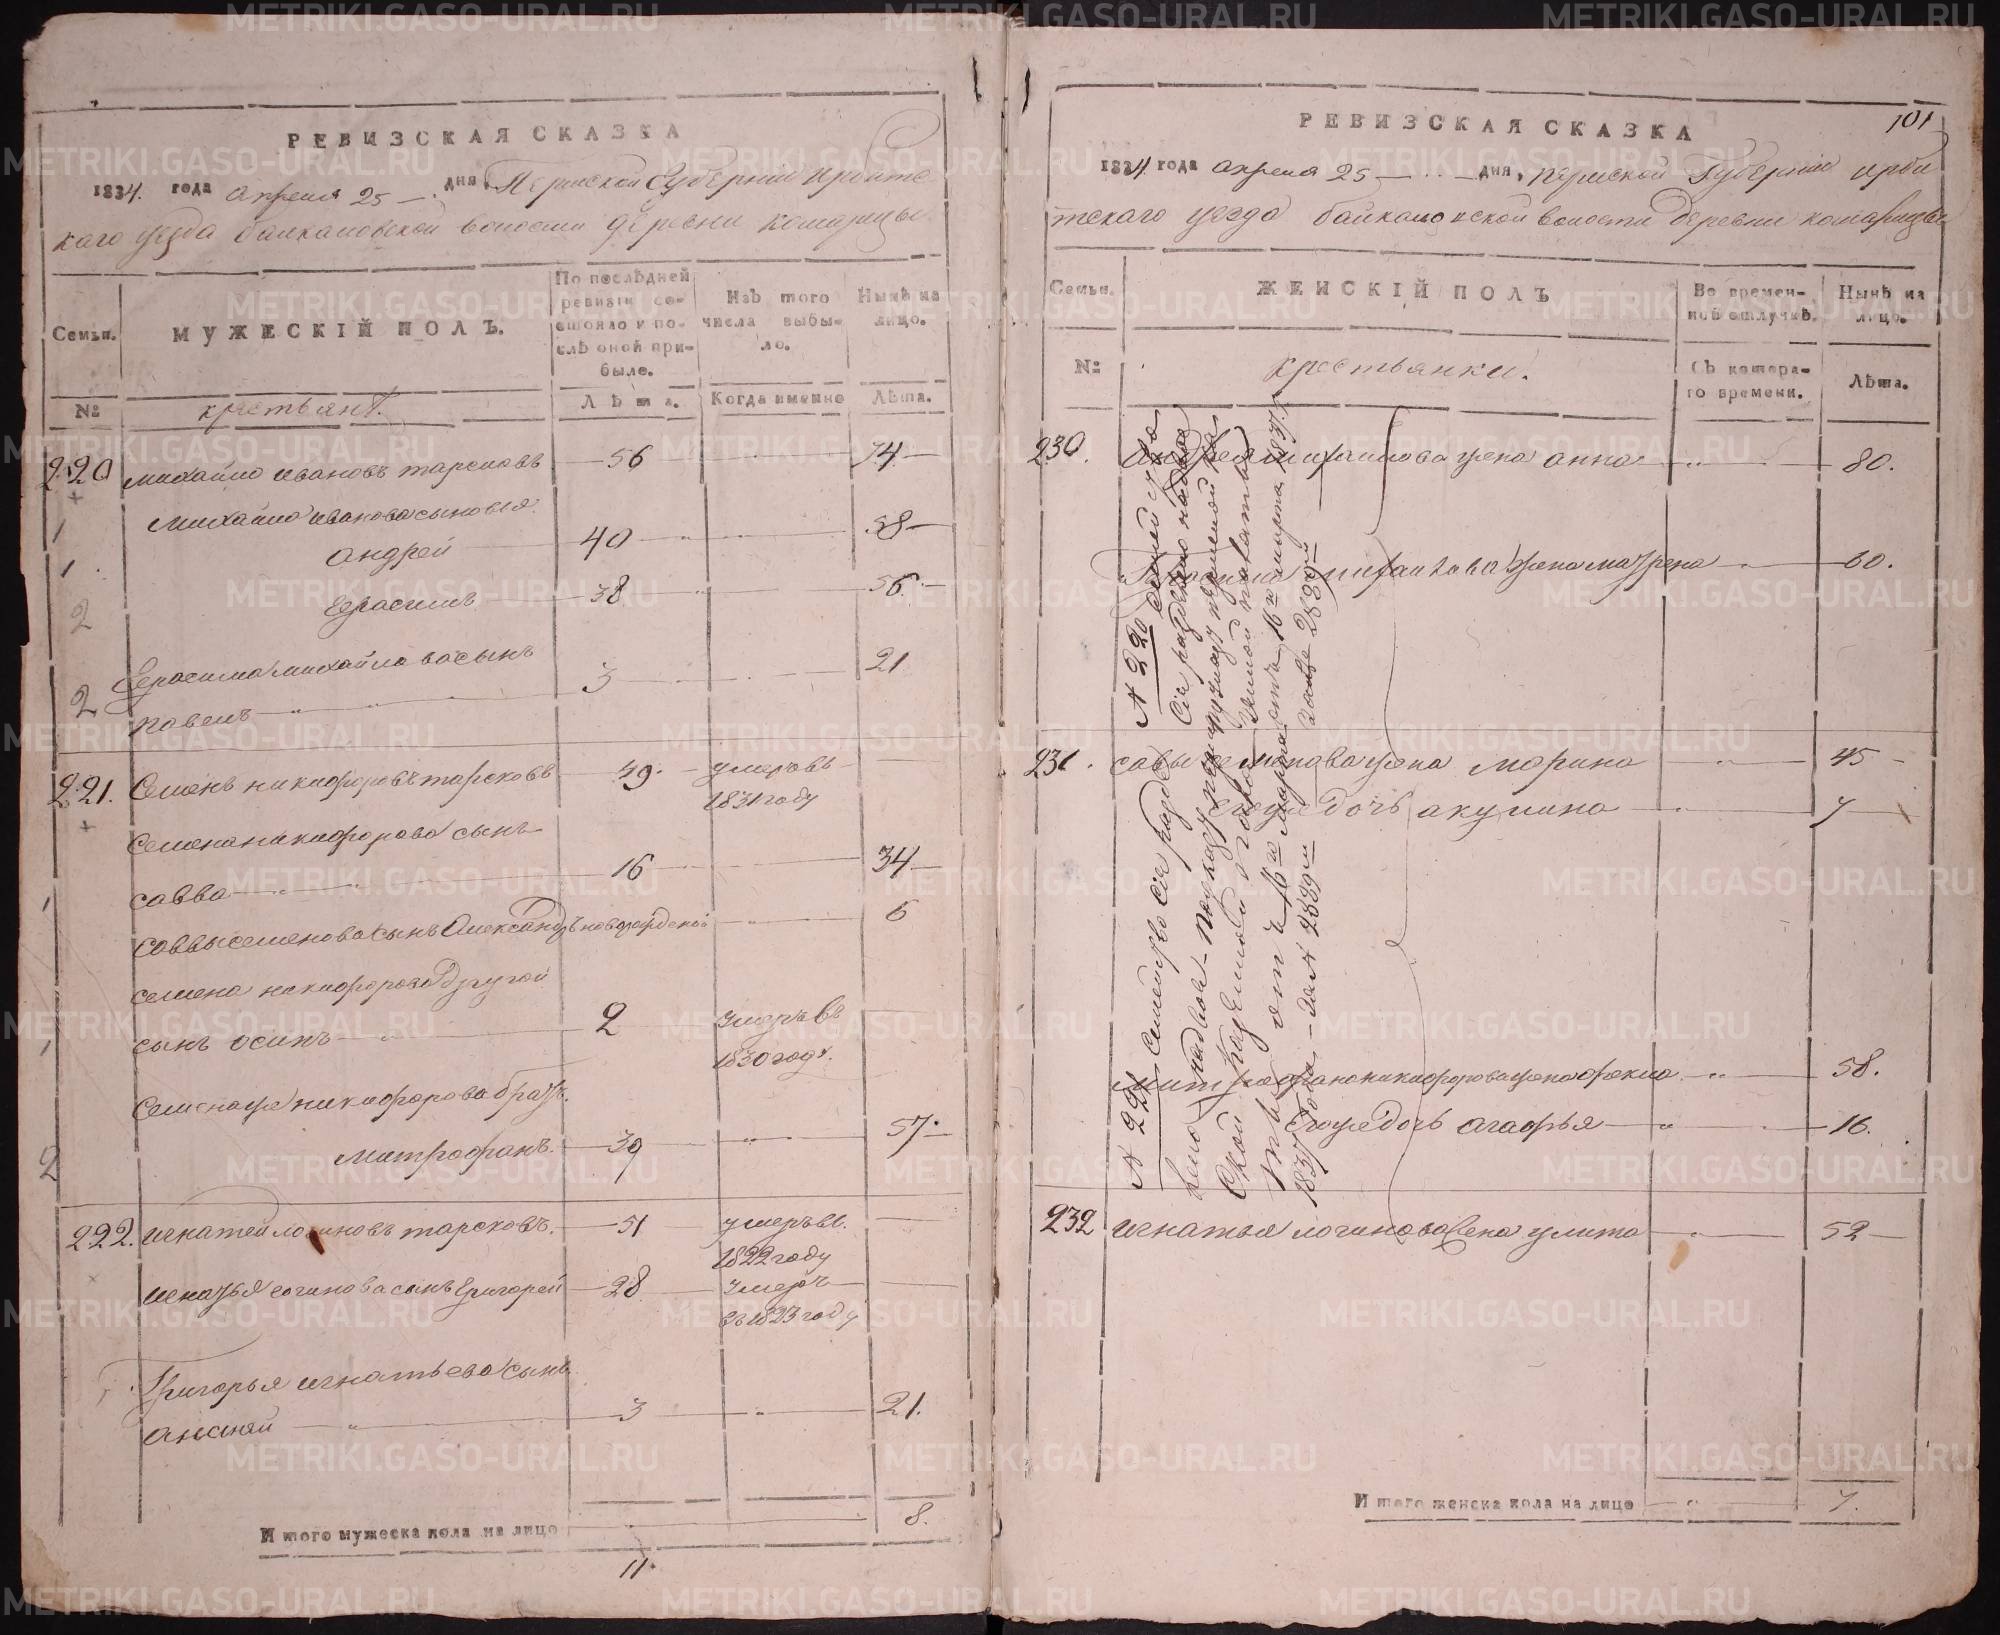 РЕВИЗСКАЯ СКАЗКА
1834. года апреля 25 дня, Пермской Губернии Ирбитс
каго уезда байкаловской волости деревни комарицы
Семьи.
МУЖЕСКІЙ ПОЛЪ.
По послѣдней ревизіи состояло и послѣ оной прибыло.
Изъ того числа выбыло.
Нынѣ на лицо.
№
крестьянѣ.
Лѣта.
Когда именно
Лѣта.
220 михайло ивановъ тарсковъ 56 74.
Михайла иванова сыновья
1 андрей 40 58
1 герасимъ 38 56.
2 Герасима михайлова сынъ
2 павелъ 3 21
221. Семенъ никифоровъ тарсковъ 49. умеръ въ
1831 году
Семена никифорова сынъ
1 савва 16 34
саввы семенова сынъ Александръ новорожденой 6
семена никифорова другой
1 сынъ осипъ 2 умеръ въ
1830 году.
Семена же никифорова братъ
2 митрофанъ. 39 57.
222. игнатей логиновъ тарсковъ. 51 умеръ въ.
1822 году
игнатья логинова сынъ григорей 28 умеръ
въ 1823 году
Григорья игнатьева сынъ
алексей 3 21.
Итого мужеска пола на лицо 8.
11.
101
РЕВИЗСКАЯ СКАЗКА
1834. года апреля 25 дня, пермской Губернии ирби
тскаго уезда байкаловской волости деревни комарицы
Семьи.
ЖЕНСКІЙ ПОЛЪ
Во временной отлучкѣ.
Нынѣ на лицо.
№
крестьянки.
Съ котораго времени.
Лѣта.
230. Андрея михайлова жена анна 80.
Герасима михайлова жена матрена 60.
231. савы семенова жена марина 45
его же дочь акулина 7
митрофана никифорова жена фекла 58.
его же дочь агафья 16.
232 игнатья логинова жена улита 52
№ 220
Сіе раздѣлено надвое
казенной палаты
отъ 16го марта 1837.
за № 2889м
№ 221 Семейство сіе раздѣ
лено надвое
Ской казенной
отъ 16го марта
1837 года за № 2889м
Итого женска пола на лицо 7.
METRIKI.GASO-URAL.RU